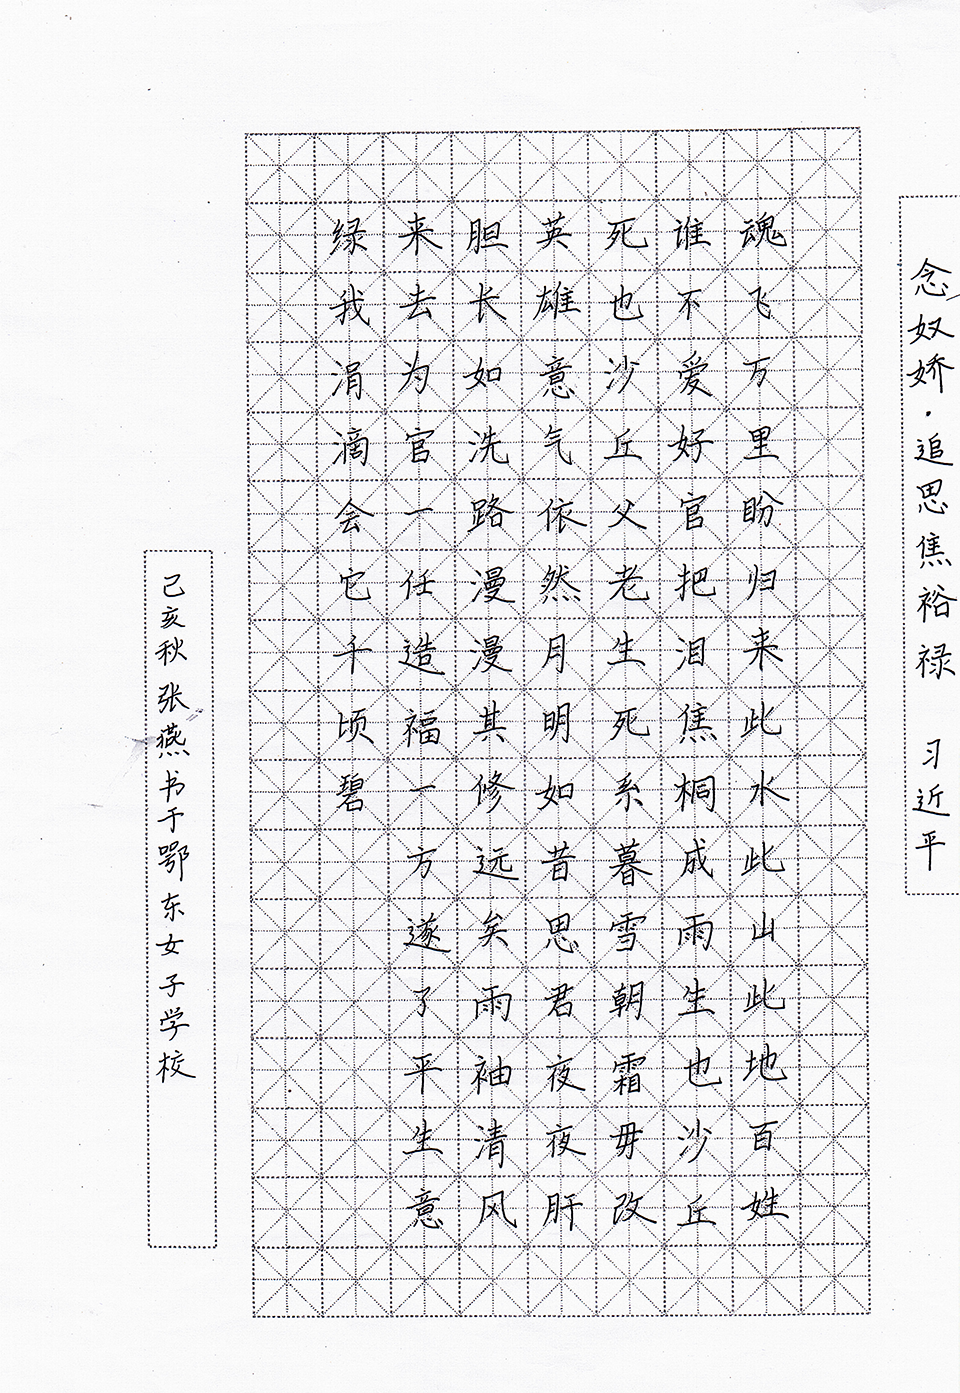 念奴娇·追思焦裕禄 习近平
魂飞万里盼归来此水此山此地百姓
谁不爱好官把泪焦桐成雨生也沙丘
死也沙丘父老生死系暮雪朝霜毋改
英雄意气依然月明如昔思君夜夜肝
胆长如洗路漫漫其修远矣雨袖清风
来去为官一任造福一方遂了平生意
绿我涓滴会它千顷碧
己亥秋张燕书于鄂东女子学校